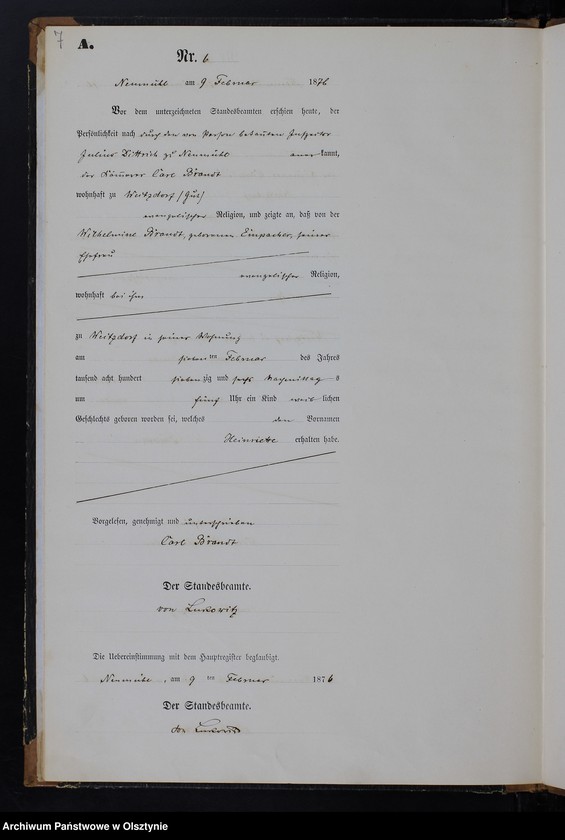 7
A.
Nr. 6
Neumühl am 9 Februar 1876
Vor dem unterzeichneten Standesbeamten erschien heute, der
Persönlichkeit nach durch den von Person bekannten Inspector
Julius Dittrich zu Neumühl anerkannt,
der Kämmerer Carl Brandt
wohnhaft zu Weitzdorf (Gut)
evangelischer Religion, und zeigte an, daß von der
Wilhelmine Brandt, geborenen Einpacher, seiner
Ehefrau
evangelischer Religion,
wohnhaft bei ihm
zu Weitzdorf in seiner Wohnung
am siebenten Februar des Jahres
tausend acht hundert siebenzig und sechs Nachmittags
um fünf Uhr ein Kind weiblichen
Geschlechts geboren worden sei, welches den Vornamen
Heinriette erhalten habe.
Vorgelesen, genehmigt und unterschrieben
Carl Brandt
Der Standesbeamte.
von Lukowitz
Die Uebereinstimmung mit dem Hauptregister beglaubigt.
Neumühl, am 9 ten Februar 1876
Der Standesbeamte.
von Lukowitz
Archiwum Państwowe w Olsztynie